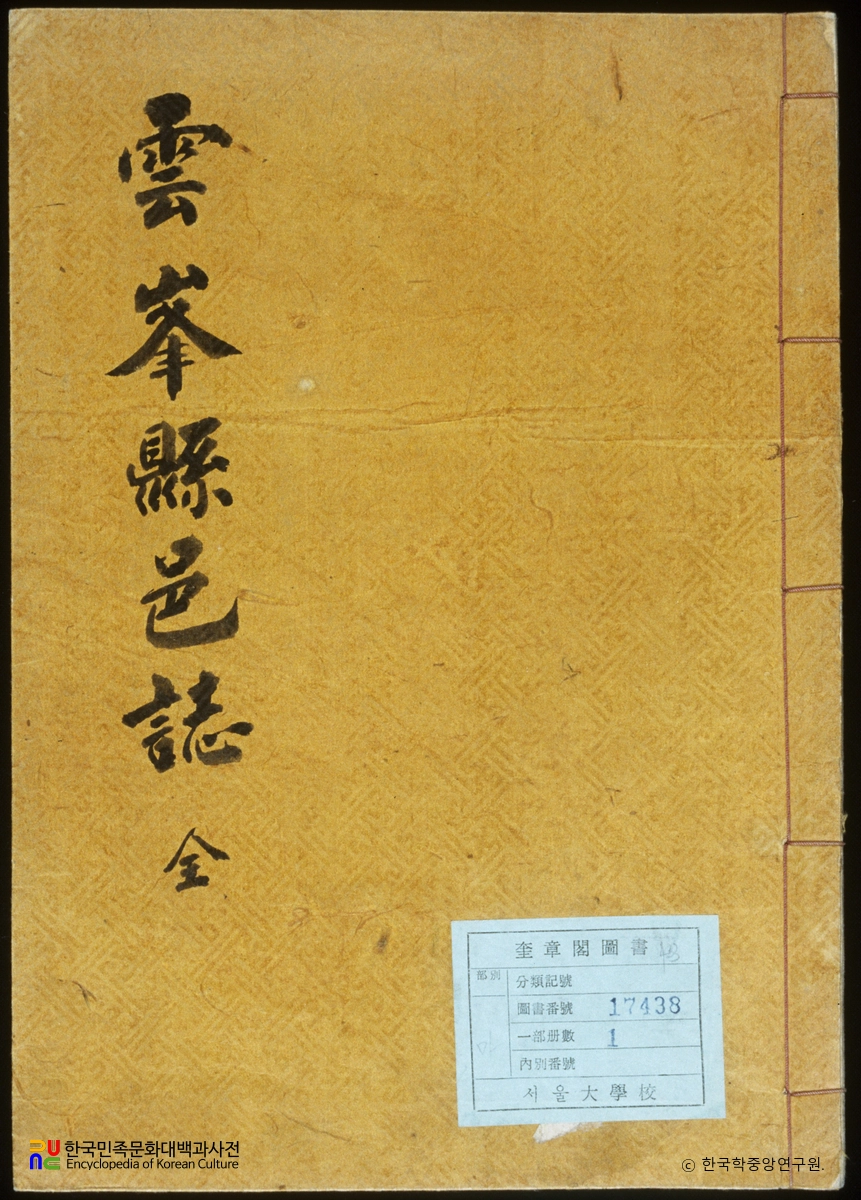 雲峯縣邑誌 全
奎章閣圖書
部別
分類記號
圖書番號 17438
一部册數 1
內別番號
서울大學校
한국민족문화대백과사전
Encyclopedia of Korean Culture
ⓒ 한국학중앙연구원.